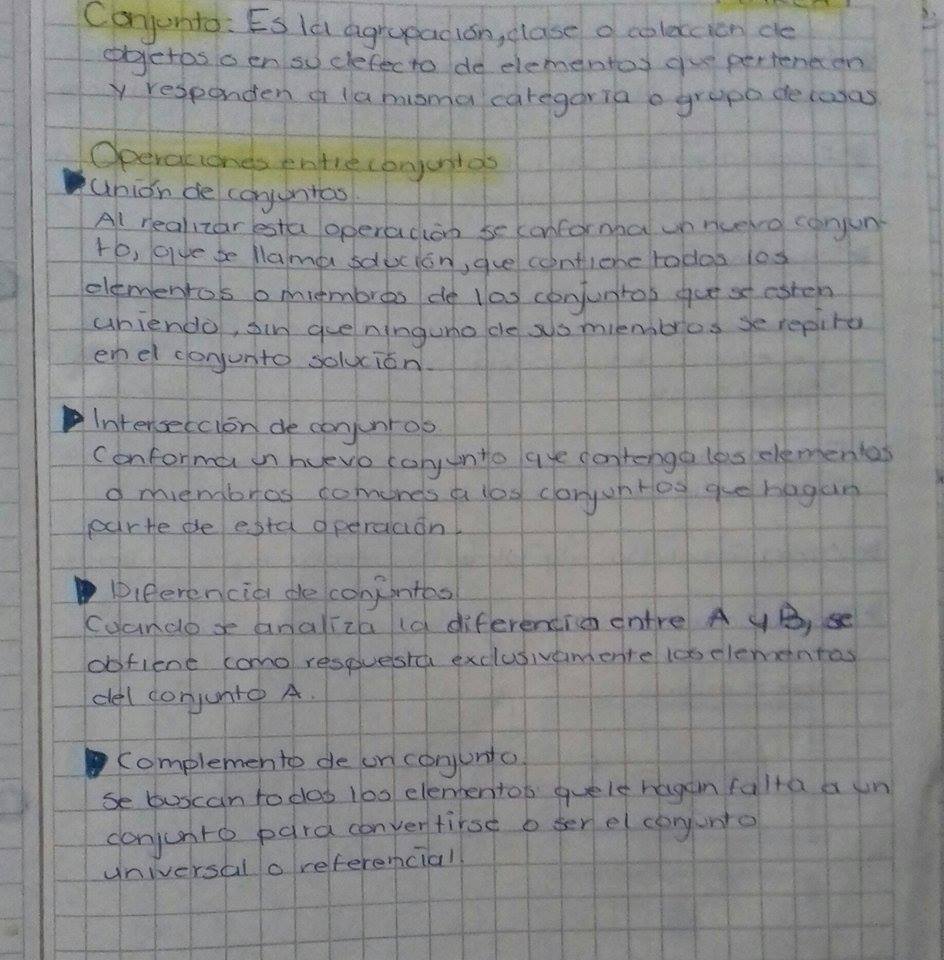 Conjunto: Es la agrupación, clase o colección de
objetos o en su defecto de elementos que pertenecen
y responden a la misma categoría o grupo de cosas
Operaciones entre conjuntos
Unión de conjuntos.
Al realizar esta operación se conforma un nuevo conjun-
to, que se llama solución, que contiene todos los
elementos o miembros de los conjuntos que se esten
uniendo, sin que ninguno de sus miembros se repita
en el conjunto solución.
Intersección de conjuntos
Conforma un nuevo conjunto que contenga los elementos
o miembros comunes a los conjuntos que hagan
parte de esta operación.
Diferencia de conjuntos
Cuando se analiza la diferencia entre A y B, se
obtiene como respuesta exclusivamente los elementos
del conjunto A.
Complemento de un conjunto
se buscan todos los elementos que le hagan falta a un
conjunto para convertirse o ser el conjunto
universal o referencial.